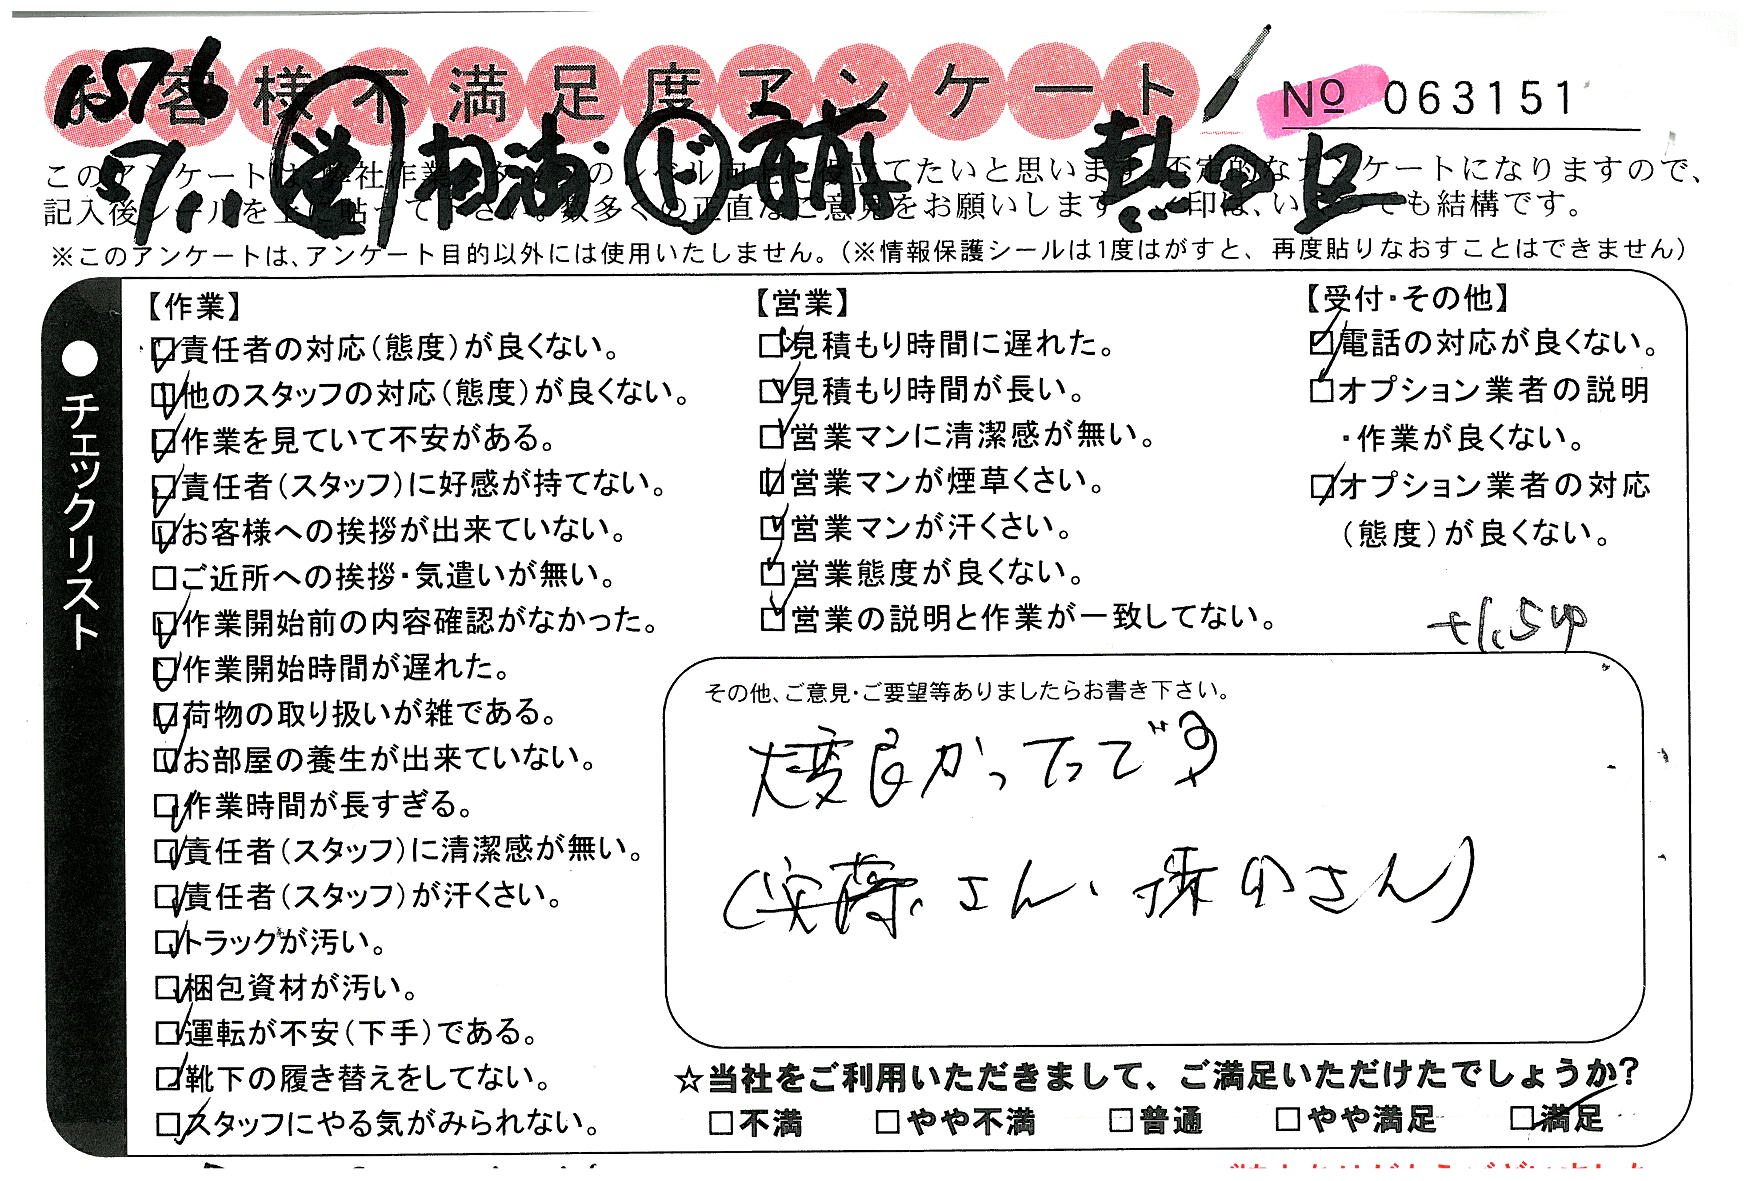 お客様不満足度アンケート
№ 063151
1576
5/11 営 相浦 ド 斉藤 熱田区
このアンケートは、弊社作業スタッフのレベル向上に役立てたいと思います。否定的なアンケートになりますので、
記入後シールを上に貼って下さい。数多くの正直なご意見をお願いします。✓印は、いくつでも結構です。
※このアンケートは、アンケート目的以外には使用いたしません。(※情報保護シールは1度はがすと、再度貼りなおすことはできません)
●チェックリスト
【作業】
□責任者の対応(態度)が良くない。
□他のスタッフの対応(態度)が良くない。
□作業を見ていて不安がある。
□責任者(スタッフ)に好感が持てない。
□お客様への挨拶が出来ていない。
□ご近所への挨拶・気遣いが無い。
□作業開始前の内容確認がなかった。
□作業開始時間が遅れた。
□荷物の取り扱いが雑である。
□お部屋の養生が出来ていない。
□作業時間が長すぎる。
□責任者(スタッフ)に清潔感が無い。
□責任者(スタッフ)が汗くさい。
□トラックが汚い。
□梱包資材が汚い。
□運転が不安(下手)である。
□靴下の履き替えをしてない。
□スタッフにやる気がみられない。
【営業】
□見積もり時間に遅れた。
□見積もり時間が長い。
□営業マンに清潔感が無い。
□営業マンが煙草くさい。
□営業マンが汗くさい。
□営業態度が良くない。
□営業の説明と作業が一致してない。
【受付・その他】
□電話の対応が良くない。
□オプション業者の説明
・作業が良くない。
□オプション業者の対応
(態度)が良くない。
その他、ご意見・ご要望等ありましたらお書き下さい。
大変良かったです
☆当社をご利用いただきまして、ご満足いただけたでしょうか?
□不満 □やや不満 □普通 □やや満足 □満足